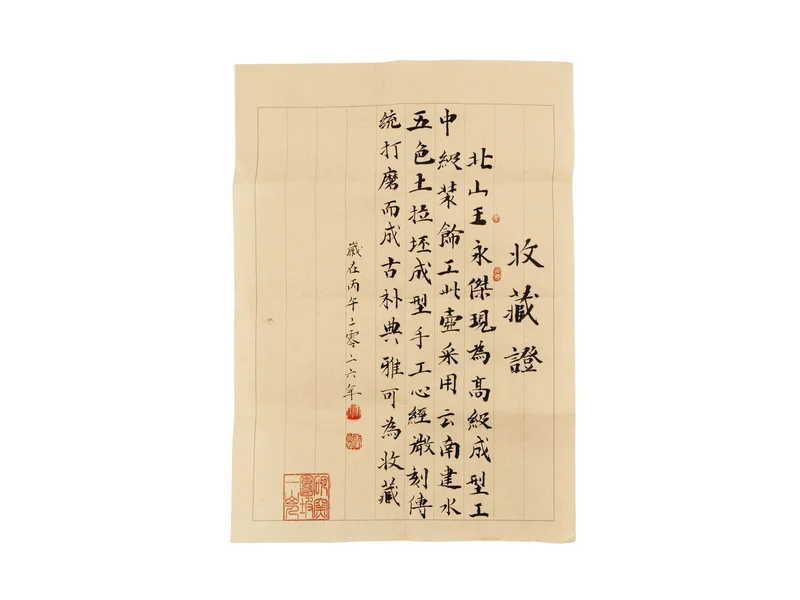 收藏證
北山王永傑現為高級成型工
中級装飾工此壷采用云南建水
五色土拉坯成型手工心經殽刻傳
统打磨而成古朴典雅可為收藏
嵗在丙午二零二六年